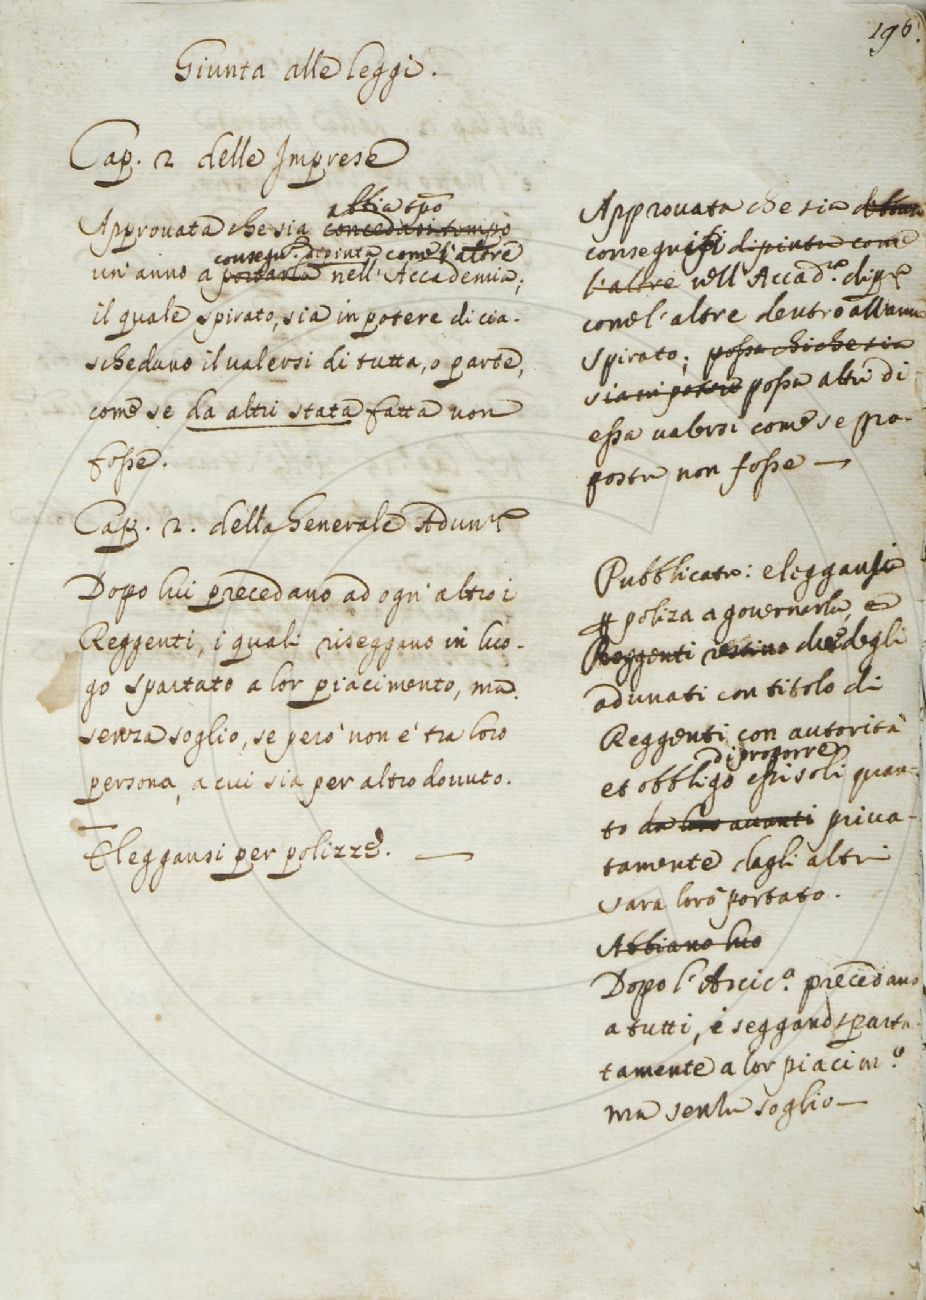 196.
Giunta alle leggi.
Cap. 2 delle Imprese
abbia tpo
Approuata che sia concedasi tempo
consegn. dipinta come l'altre
un'anno a portarla nell'Accademia;
il quale spirato, sia in potere di cia-
scheduno il ualersi di tutta, o parte,
come se da altri stata fatta non
fosse.
Cap. 2. della Generale Adun.
Dopo lui precedano ad ogn'altro i
Reggenti, i quali riseggano in luo-
go spartato a lor piacimento, ma
senza soglio, se però non è tra loro
persona, a cui sia per altro douuto.
Eleggansi per polizze.
Approuata che sia
consegnisi dipinta come
l'altre nell'Accad.a
come l'altre dentro all'anno
spirato; possa chi che sia
sia in potere possa altri di
essa ualersi come se pro-
posta non fosse
Pubblicato: eleggansi
poliza a gouernarla, e
Reggenti due degli
adunati con titolo di
Reggenti con autorità
di proporre
et obbligo essi soli quan-
to da loro auanti priua-
tamente dagli altri
sara loro portato.
Abbiano luo
Dopo l'Arcic.o precedano
a tutti, e seggano sparta-
tamente a lor piacim.o
ma senza soglio